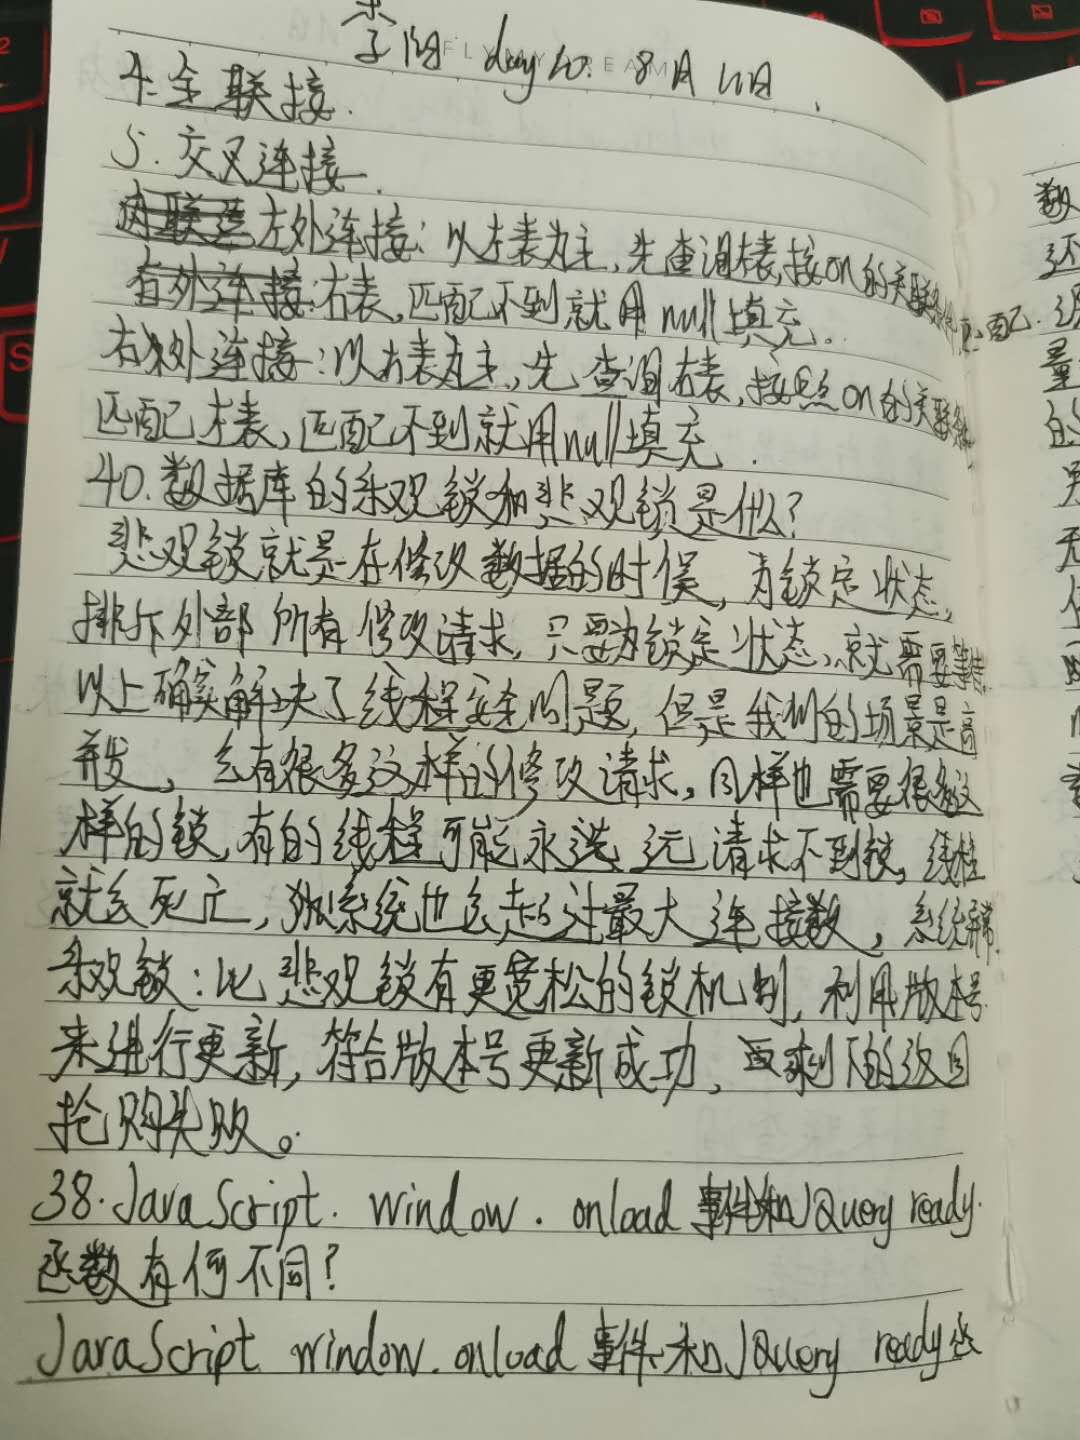 李阳 day10. 8月11日.
FLYMY DREAM
4.全联接.
5.交叉连接.
左外连接:以左表为主,先查询左表,按on的关联条件匹配
右表,匹配不到就用null填充。
右外连接:以右表为主,先查询右表,按照on的关联条件
匹配左表,匹配不到就用null填充.
40.数据库的乐观锁和悲观锁是什么?
悲观锁就是在修改数据的时候,为锁定状态,
排斥外部所有修改请求,只要为锁定状态,就需要等待
以上确实解决了线程安全问题,但是我们的场景是高
并发,会有很多这样的修改请求,同样也需要很多这
样的锁,有的线程可能永远请求不到锁,线程
就会死亡,系统也会超过最大连接数,系统异常.
乐观锁:比悲观锁有更宽松的锁机制,利用版本号
来进行更新,符合版本号更新成功,而剩下的返回
抢购失败。
38.JavaScript. window.onload 事件和JQuery ready.
函数有何不同?
JavaScript window.onload 事件和JQuery ready函
数
还
量
的